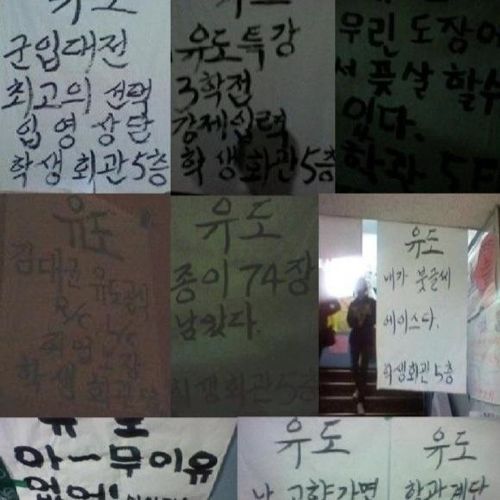 유도
군입대전
최고의 선택
입영상담
학생회관5층
유도
유도특강
3학점
강제입력
학생회관5층
우린 도장에
서 풋살 할수
있다.
학관 5F
유도
김대근
유도
종이 74장
남았다.
학생회관5층
유도
내가 붓글씨
에이스다.
학생회관5층
유도
아-무이유
없어!
유도
난 고향가면
유도
학과계단